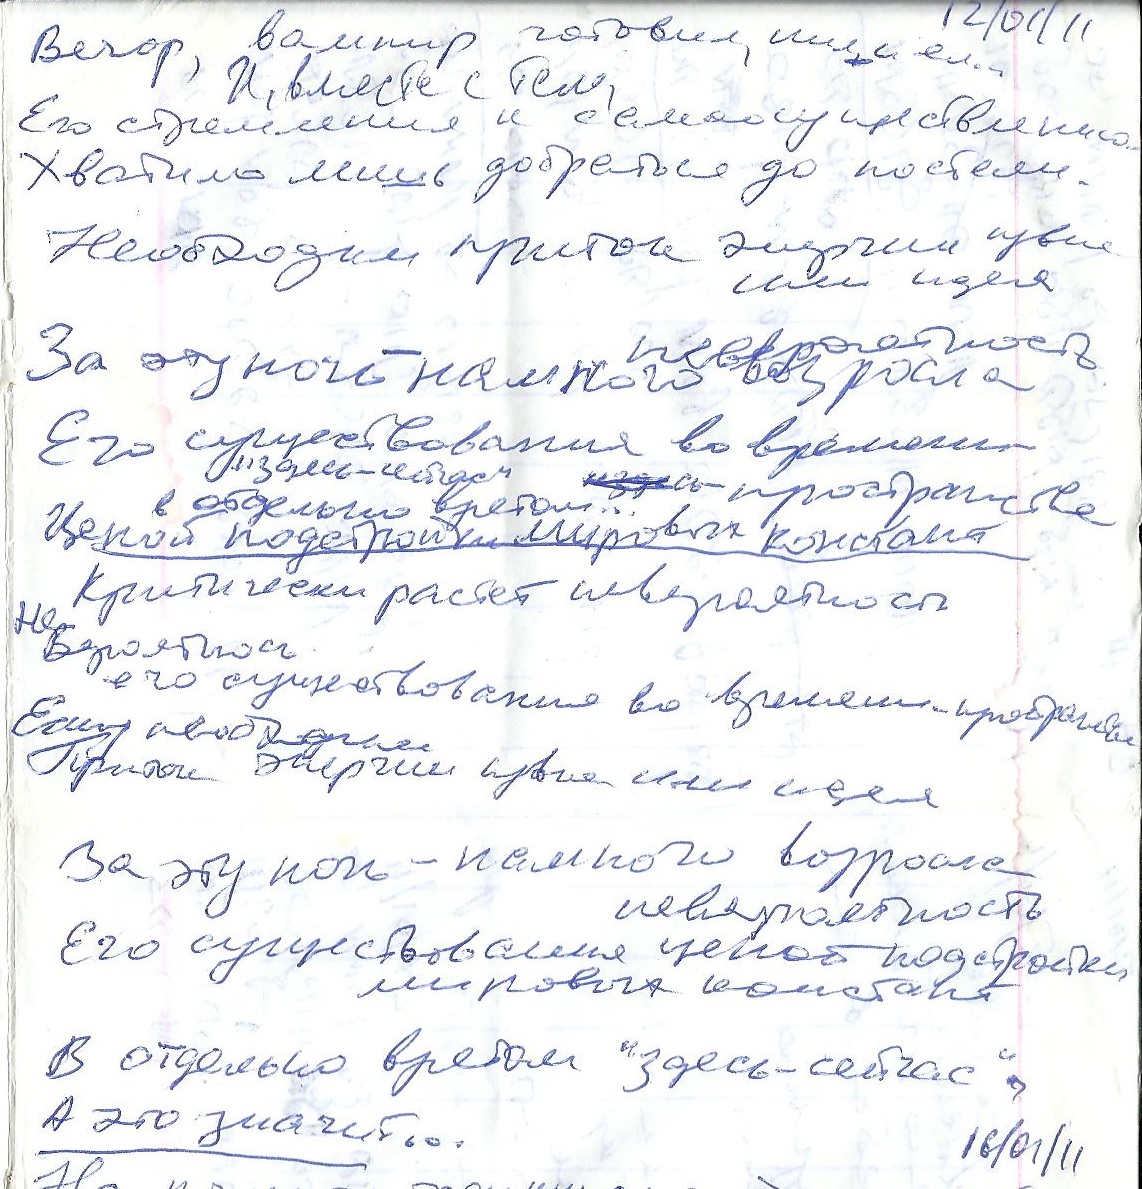 12/01/11
Вечор, вампир готовил,
И, вместе с тем,
Его стремления к самоосуществлению
Хватило лишь добраться до постели.
Необходим приток энергии извне
или идея
невероятность
За эту ночь намного возросла
Его существования во времени
"здесь-сейчас" пространстве
в отдельно взятом
Ценой подстройки мировых констант
Критически растет невероятность
Не
Вероятнось
его существования во времени-пространстве
Ему необходим
Приток энергии извне или идея
За эту ночь - намного возросла
невероятность
Его существования ценой подстройки
мировых констант
В отдельно взятом "здесь-сейчас",
А это значит...
16/01/11